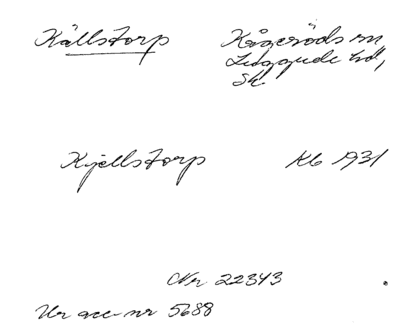 Källstorp
Kågeröds sn,
Luggude hd,
Sk.
Kjellstorp
Kb 1931
Nr 22343
Ur acc nr 5688